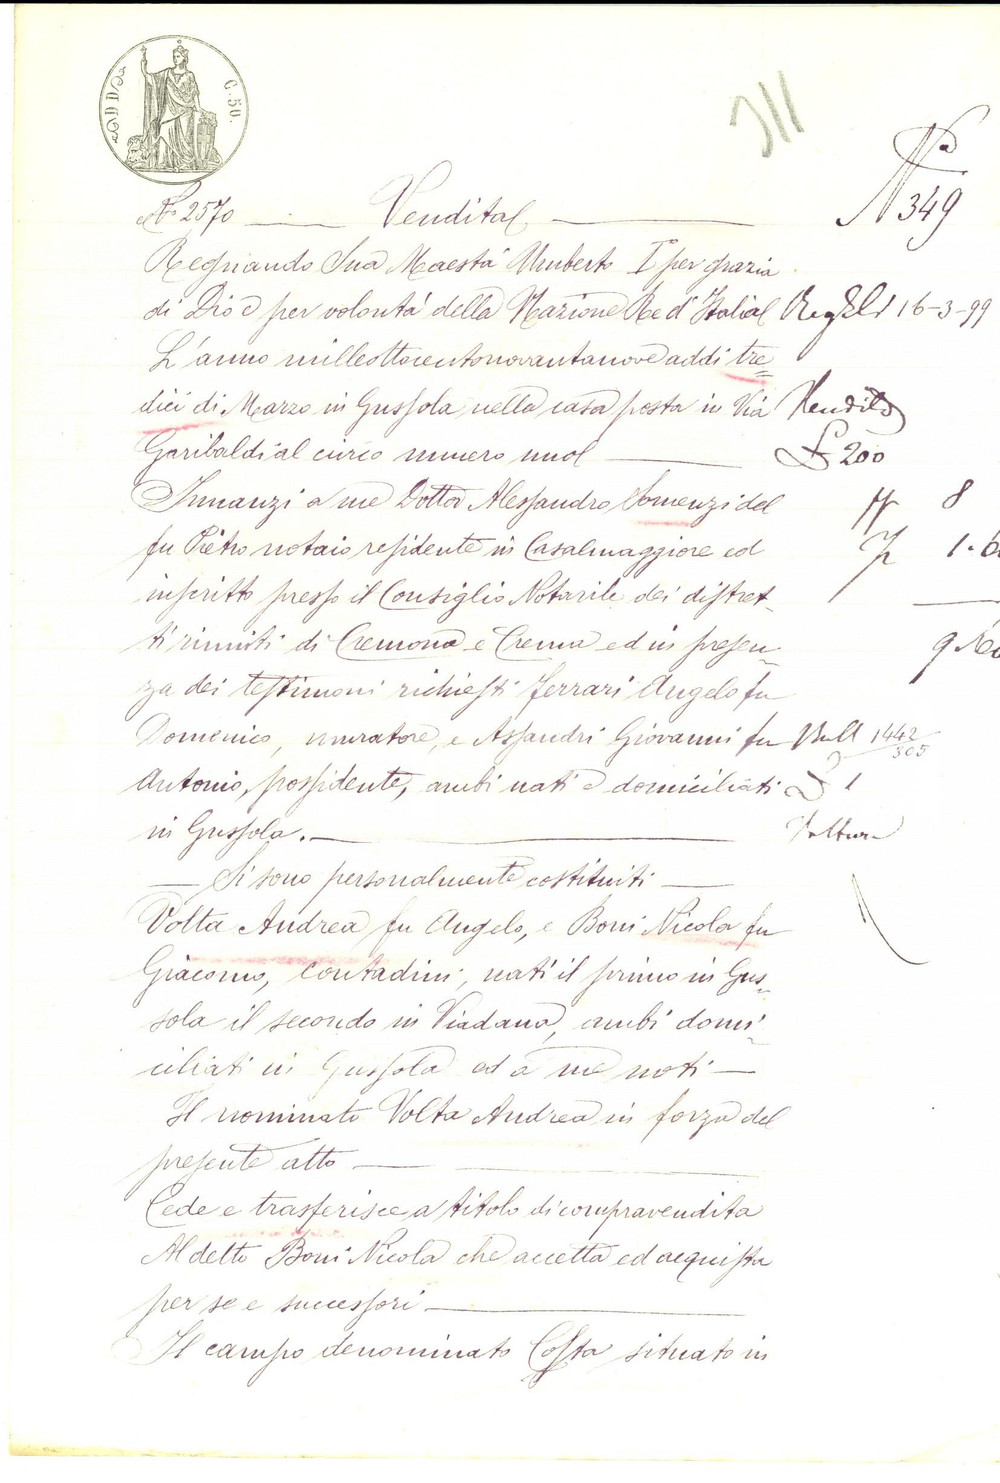 C. 50.
311
Nº 349
Nº 2570 Vendita
Regnando Sua Maestà Umberto Iº per grazia
di Dio e per volontà della Nazione Re d'Italia
16-3-99
L'anno milleottocentonovantanove addì tre=
dici di Marzo in Gussola nella casa posta in Via
Vendita
Garibaldi al civico numero uno
£ 200
Innanzi a me Dottor Alessandro Somenzi del
8
fu Pietro notaio residente in Casalmaggiore ed
inscritto presso il Consiglio Notarile dei distret-
ti riuniti di Cremona e Crema ed in presen-
za dei testimoni richiesti Ferrari Angelo fu
Domenico, muratore, e Assandri Giovanni fu
1442
305
Antonio, possidente, ambi nati e domiciliati
£ 1
in Gussola.
Voltura
Si sono personalmente costituiti
Volta Andrea fu Angelo, e Boni Nicola fu
Giacomo, contadini, nati il primo in Gus-
sola il secondo in Viadana, ambi domi-
ciliati in Gussola ed a me noti
Il nominato Volta Andrea in forza del
presente atto
Cede e trasferisce a titolo di compravendita
Al detto Boni Nicola che accetta ed acquista
per se e successori
Il campo denominato Costa situato in